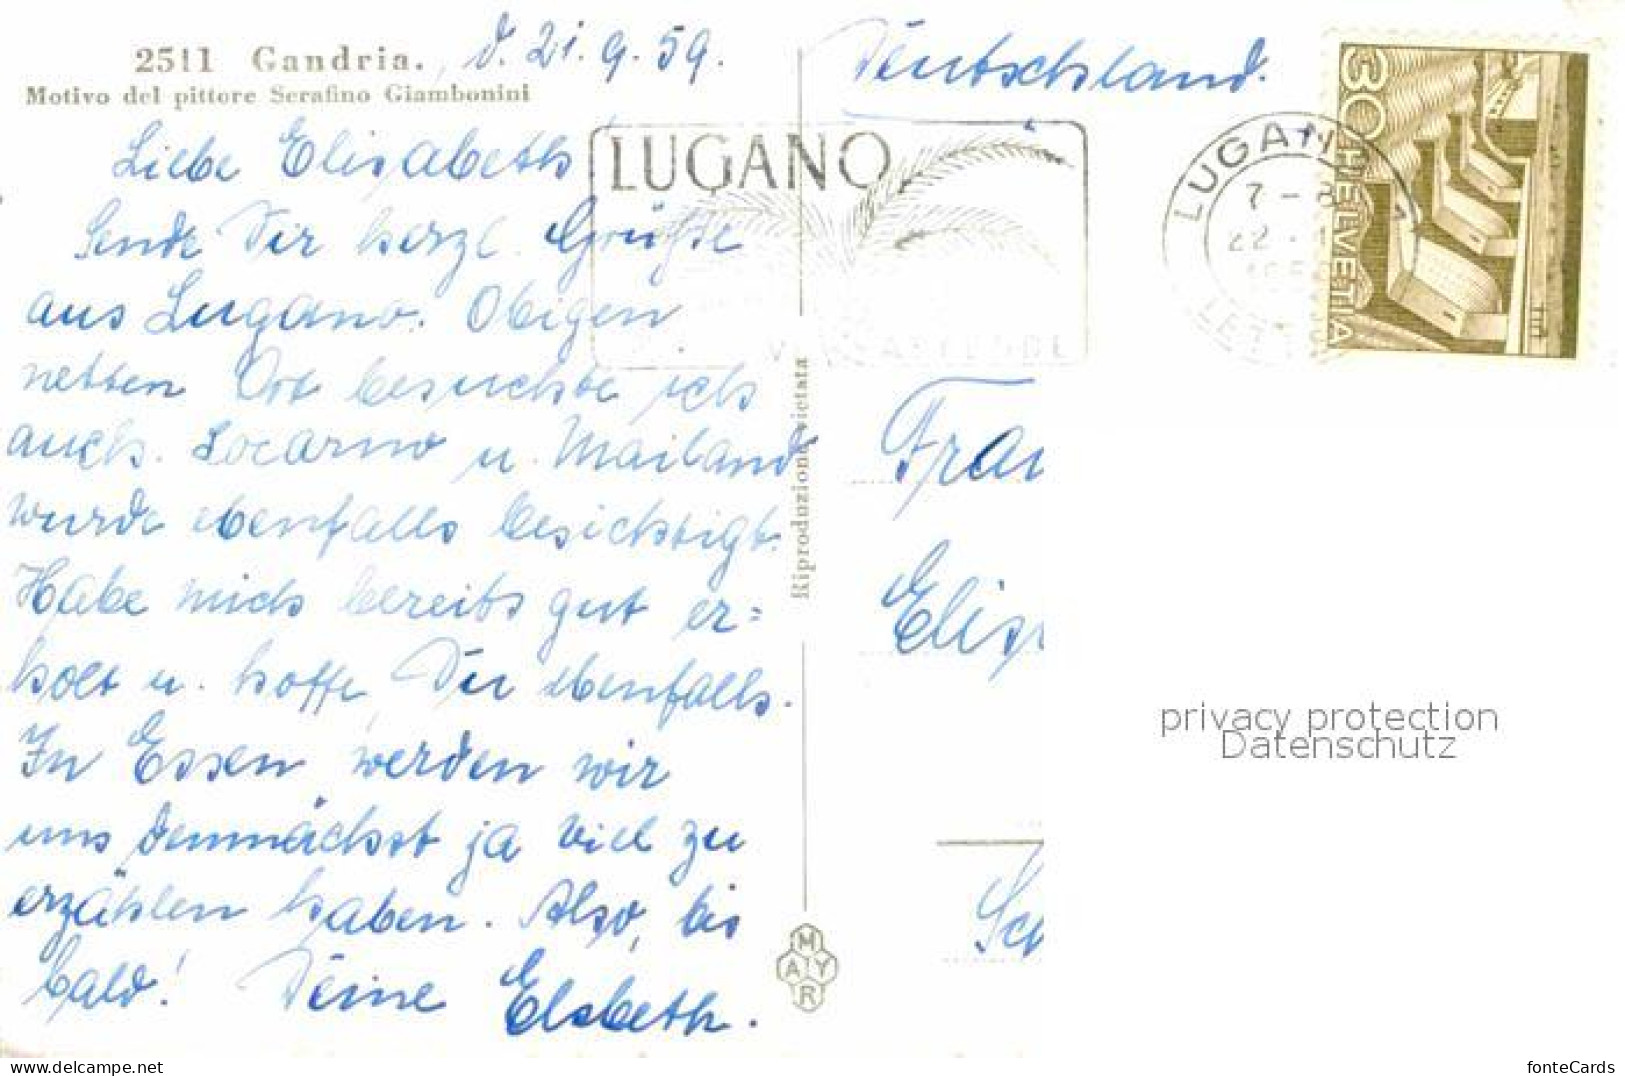 2511 Gandria. d. 21.9.59.
Motivo del pittore Serafino Giambonini
Liebe Elisabeth
Sende Dir herzl. Grüße
aus Lugano. Obigen
netten Ort besuchte ich
auch. Locarno u. Mailand
wurde ebenfalls besichtigt.
Habe mich bereits gut er=
holt u. hoffe, Du ebenfalls.
In Essen werden wir
uns demnächst ja viel zu
erzählen haben. Also, bis
bald! Deine Elsbeth.
Riproduzione vietata
MAYR
Deutschland.
LUGANO
LUGANO
7-
22.
30 HELVETIA
Frau
Elis
Sch
privacy protection
Datenschutz
www.delcampe.net
fonteCards